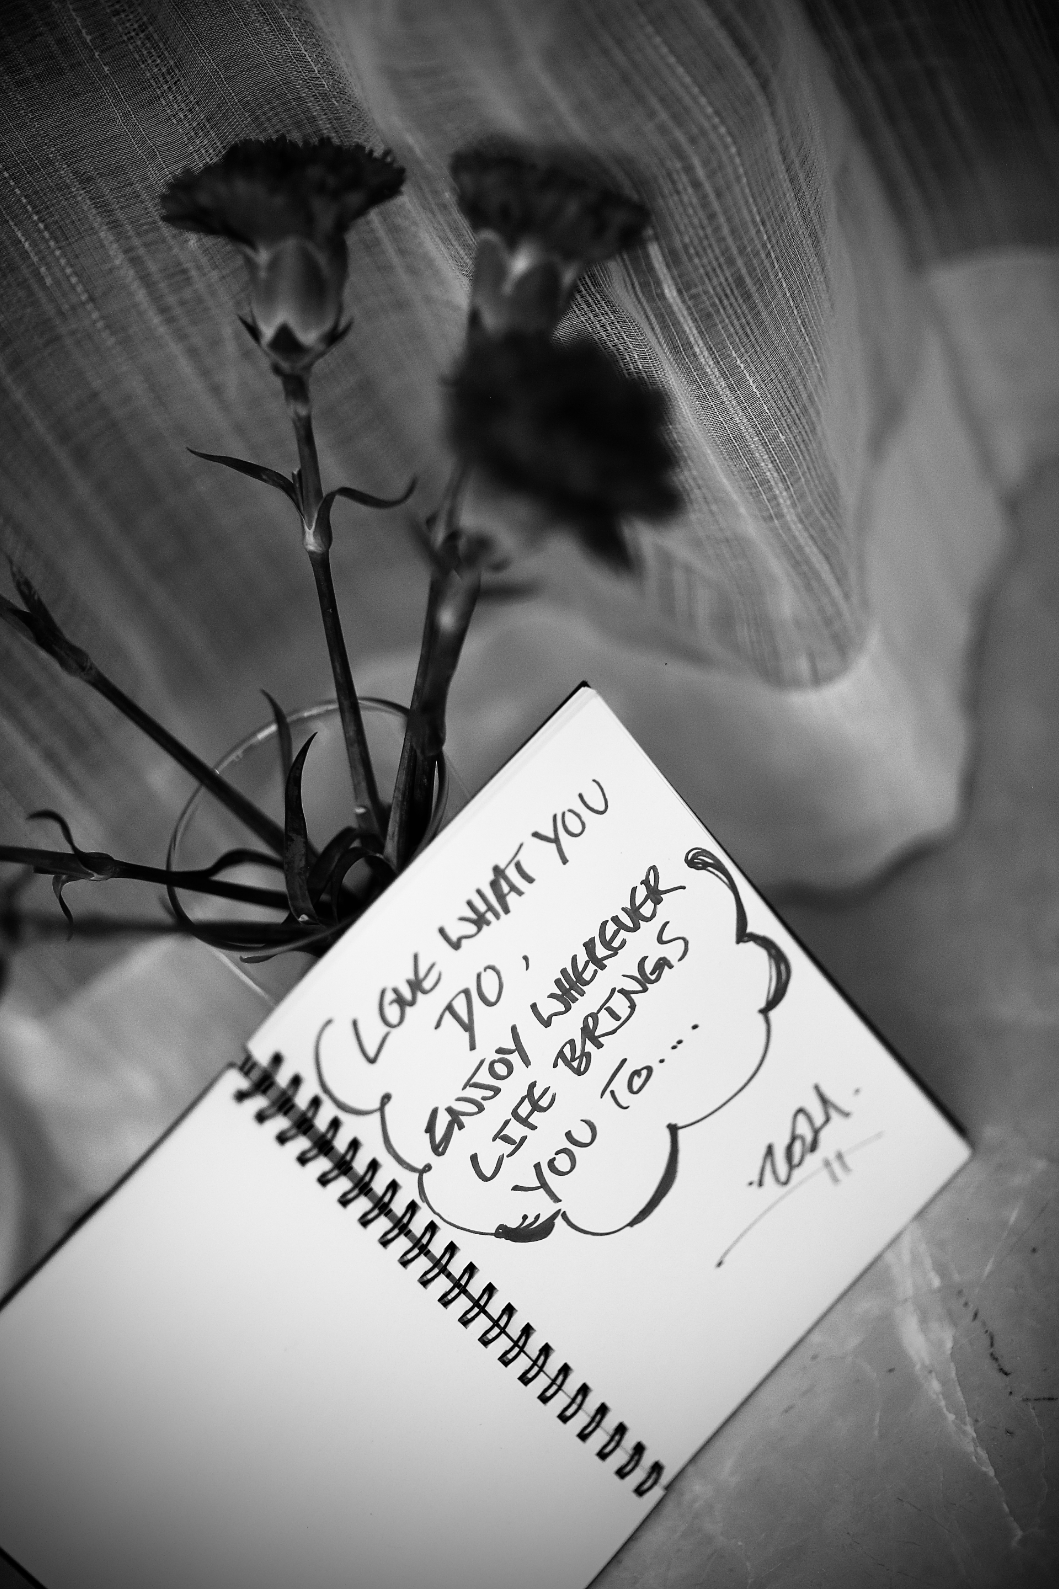 LOVE WHAT YOU
DO,
ENJOY WHEREVER
LIFE BRINGS
YOU TO....